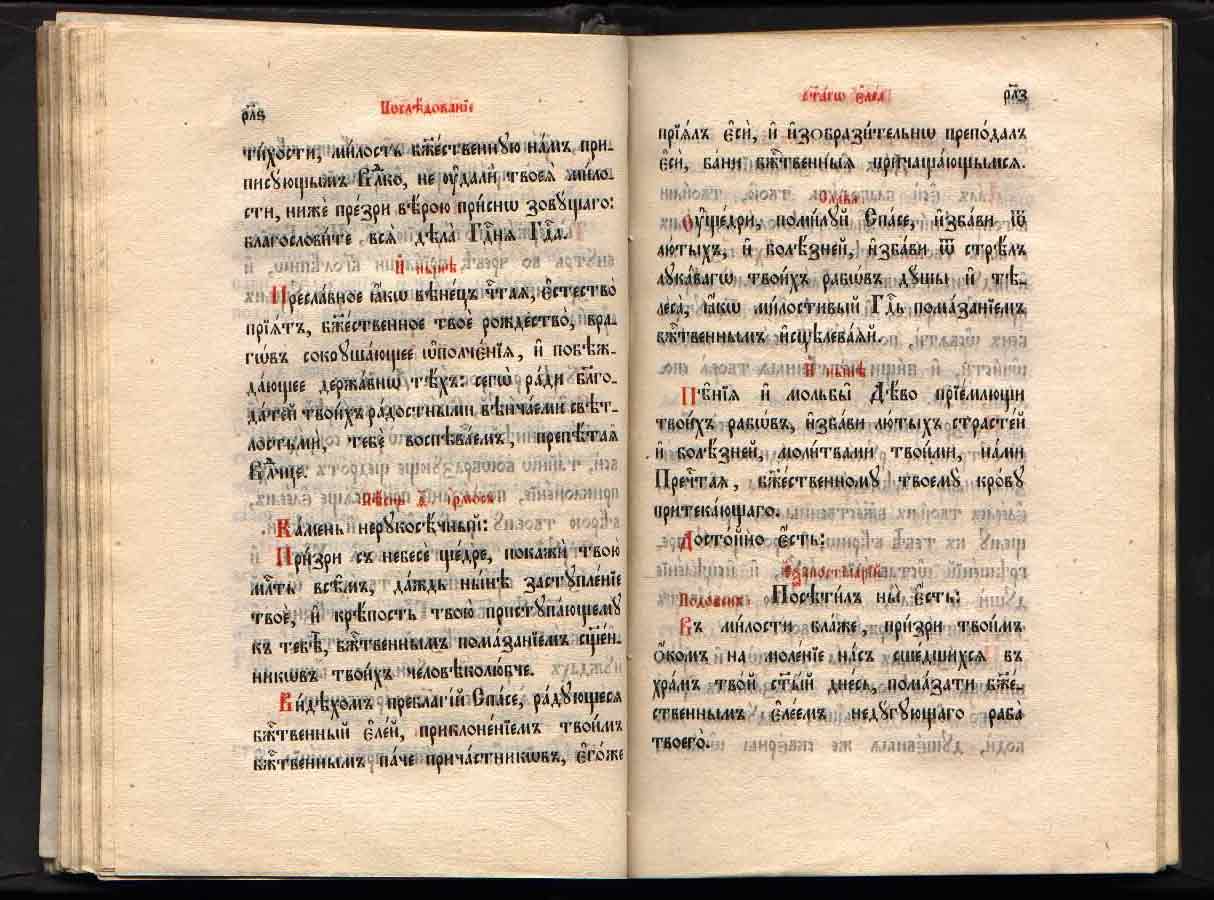 рл҃ѕ
Послѣ́дованїе
ти́хости, ми́лость бж҃е́ственную на́мъ при-
писꙋ́ющымъ влⷣко, не ᲂу҆далѝ твоеѧ̀ ми́ло-
сти, нижѐ пре́зри вѣ́рою при́снѡ зовꙋ́щаго:
благослови́те, всѧ̑ дѣла̀ гдⷭ҇нѧ гдⷭ҇а.
И҆ ны́нѣ
Пресла́вное ꙗ҆́кѡ вѣне́цъ чⷭ҇таѧ, є҆стество̀
прїѧ́тъ, бж҃е́ственное твоѐ рождество̀, вра-
гѡ́въ сокрꙋша́ющее ѡ҆полчє́нїѧ, и҆ побѣж-
да́ющее держа́внѡ тѣ́хъ: сегѡ̀ ра́ди бл҃го-
да́тей твои́хъ ра́достными вѣнча́еми свѣ́т-
лостьми, тебѐ воспѣва́емъ, препѣ́таѧ
влⷣчце.
Пѣ́снь ѳ҃ і҆рмо́съ
Ка́мень нерꙋкосѣ́чный:
При́зри съ небесѐ ще́дре, покажѝ твою̀
млⷭ҇ть всѣ̑мъ, да́ждь ны́нѣ застꙋпле́нїе
твоѐ, и҆ крѣ́пость твою̀ пристꙋпа́ющемꙋ
къ тебѣ̀, бжⷭ҇твеннымъ пома́занїемъ сщ҃е́н-
никѡвъ твои́хъ человѣколю́бче.
Ви́дѣхомъ пребл҃гі́й сп҃се, ра́дꙋющесѧ
бжⷭ҇твенный є҆ле́й, приклоне́нїемъ твои́мъ
бжⷭ҇твеннымъ па́че прича́стникѡвъ, є҆го́же
ст҃а́гѡ є҆ле́а
рл҃з
прїѧ́лъ є҆сѝ, и҆ и҆зобрази́тельнѡ препода́лъ
є҆сѝ, ба́ни бжⷭ҇твенныѧ причаща́ющымсѧ.
Сла́ва
Оу҆ще́дри, поми́лꙋй сп҃се, и҆зба́ви ѿ
лю́тыхъ, и҆ болѣ́зней, и҆зба́ви ѿ стрѣ́лъ
лꙋка́вагѡ твои́хъ рабѡ́въ дꙋ́шы и҆ тѣ-
леса̀, ꙗ҆́кѡ ми́лостивый гдⷭ҇ь пома́занїемъ
бжⷭ҇твеннымъ и҆сцѣлева́ѧй.
И҆ ны́нѣ
Пѣ̑нїѧ и҆ мольбы̑ дв҃о прїе́млющи
твои́хъ рабѡ́въ, и҆зба́ви лю́тыхъ страсте́й
и҆ болѣ́зней, моли́твами твои́ми, на́ми
пречⷭ҇таѧ, бж҃е́ственномꙋ твоемꙋ̀ кро́вꙋ
притека́ющаго.
Досто́йно є҆́сть:
Е҆ѯапостїла́рїй
Подо́бенъ: Посѣти́лъ ны̀ є҆́сть:
Въ ми́лости бла́же, при́зри твои́мъ
о҆́комъ на моле́нїе на́съ сше́дшихсѧ въ
хра́мъ тво́й ст҃ы́й дне́сь, пома́зати бж҃е́-
ственнымъ є҆ле́емъ недꙋ́гꙋющаго раба̀
твоего̀.